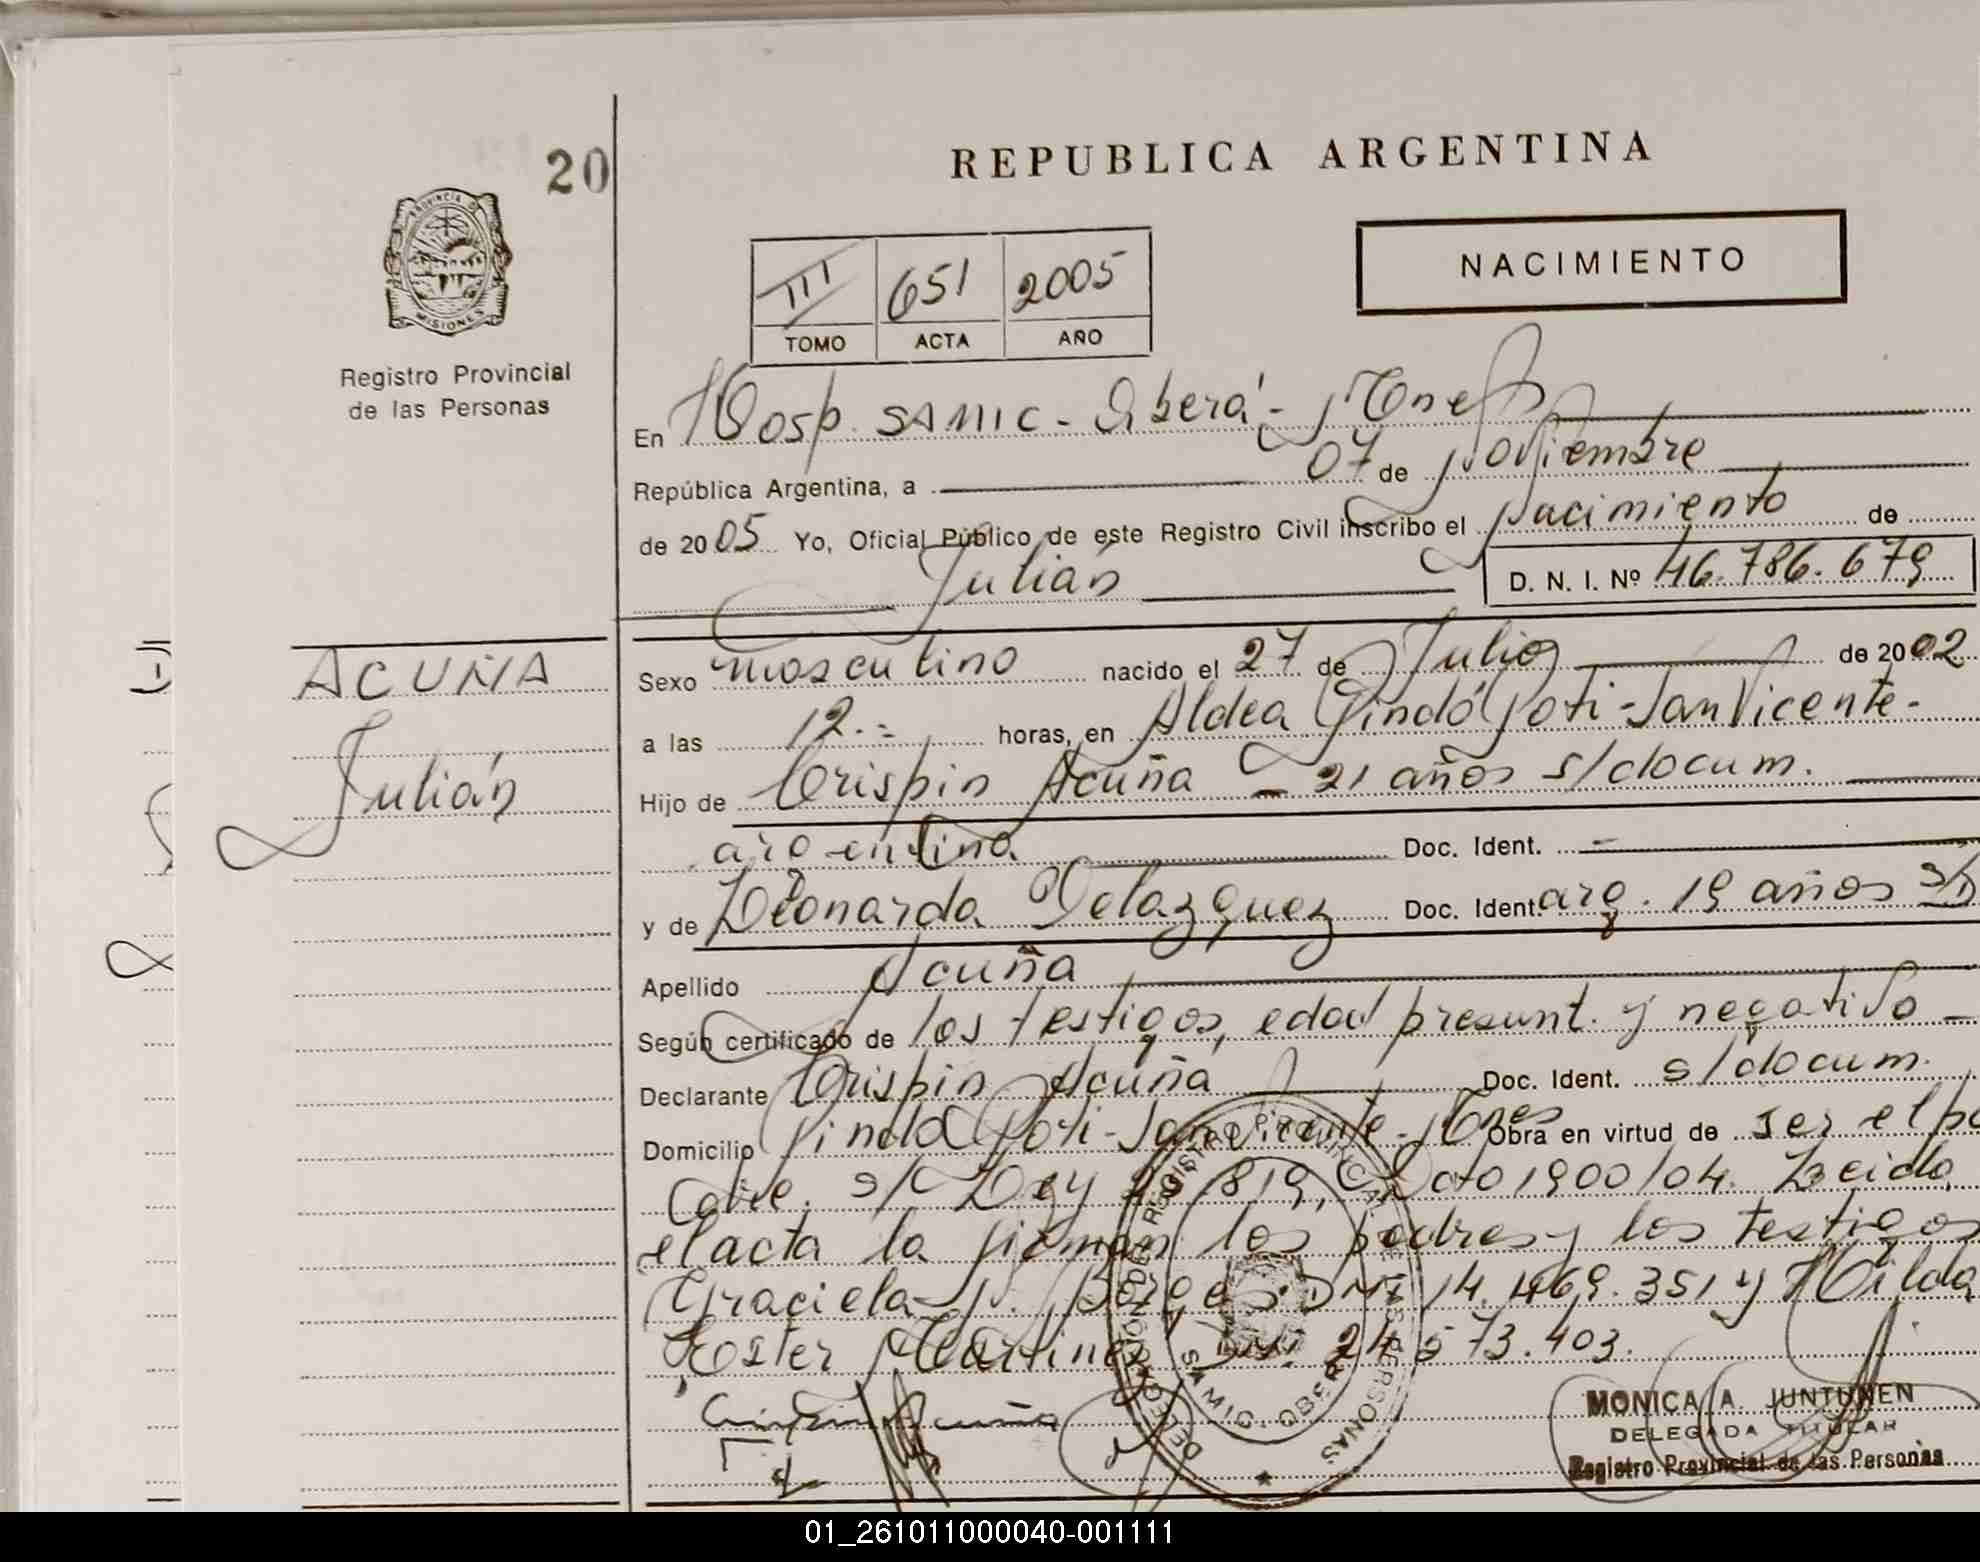 20
REPUBLICA ARGENTINA
PROVINCIA DE
MISIONES
Registro Provincial
de las Personas
NACIMIENTO
III 651 2005
TOMO ACTA AÑO
En Hosp. SAMIC - Oberá - Mnes
República Argentina, a 07 de Noviembre
de 2005 Yo, Oficial Público de este Registro Civil inscribo el Nacimiento de
Julián
D. N. I. Nº 46.786.679
ACUÑA
Julián
Sexo masculino nacido el 27 de Julio de 2002
a las 12.- horas, en Aldea Pindó Poti - San Vicente -
Hijo de Crispin Acuña - 21 años s/docum.
argentina Doc. Ident. -
y de Leonarda Velazquez Doc. Ident. arg. 19 años S/D
Apellido Acuña
Según certificado de los testigos, edad presunt. y negativo -
Declarante Crispin Acuña Doc. Ident. s/docum.
Domicilio Pindó Poti - San Vicente - Mnes Obra en virtud de ser el pa
s/ Ley 25.819, Dcto 1900/04. Leida
el acta la firman los padres y los testigos
Graciela N. DNI 14.469.351 y Hilda
Ester Martinez DNI 24.573.403.
Crispin Acuña
DELEGACION DEL REGISTRO PROVINCIAL DE LAS PERSONAS
SAMIC. OBERA
MONICA A. JUNTUNEN
DELEGADA TITULAR
Registro Provincial de las Personas
01_261011000040-001111